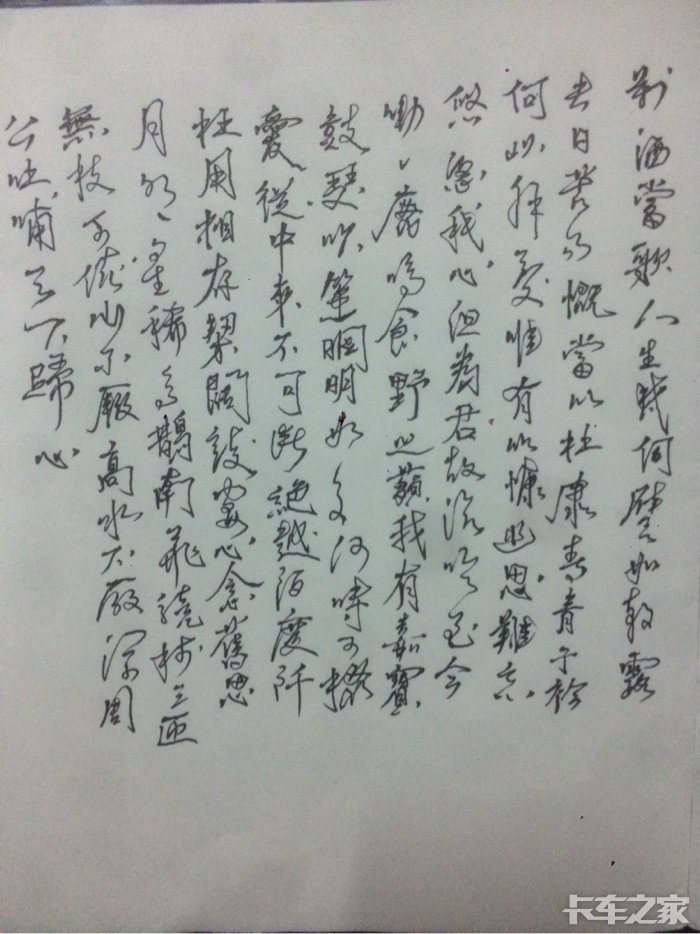 對酒當歌人生幾何譬如朝露
去日苦多慨當以杜康青青子衿
何以解憂惟有以慷幽思難忘
悠悠我心但為君故沉吟至今
呦、鹿鳴食野之蘋我有嘉賓
鼓瑟吹笙明明如月何時可掇
憂從中來不可斷絕越陌度阡
枉用相存契闊談宴心念舊恩
月明、星稀烏鵲南飛繞樹三匝
無枝可依山不厭高水不厭深周
公吐哺天下歸心
卡车之家